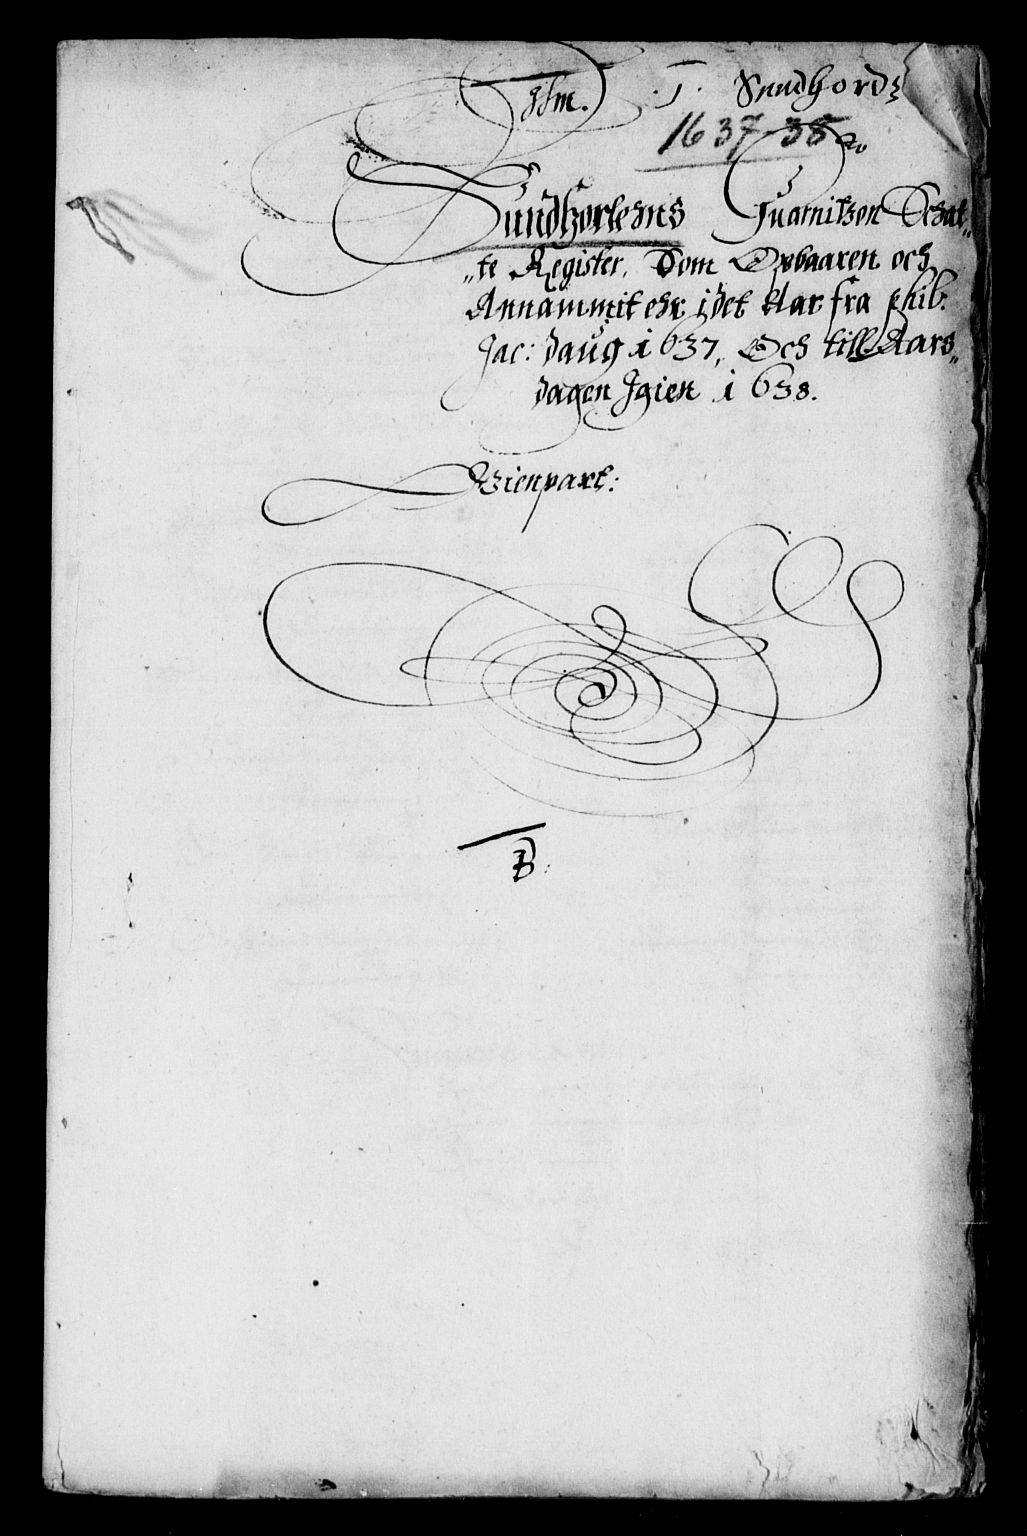 1. Sundhord
1637-38
Sundhorlehns Guarnison Schat„
„te Register, Som Opbaaren och
Annammit ehr j det Aar fra phil:
Jac: daug i637, Och till Aars„
dagen Jgien i638.
Wienpart:
B: